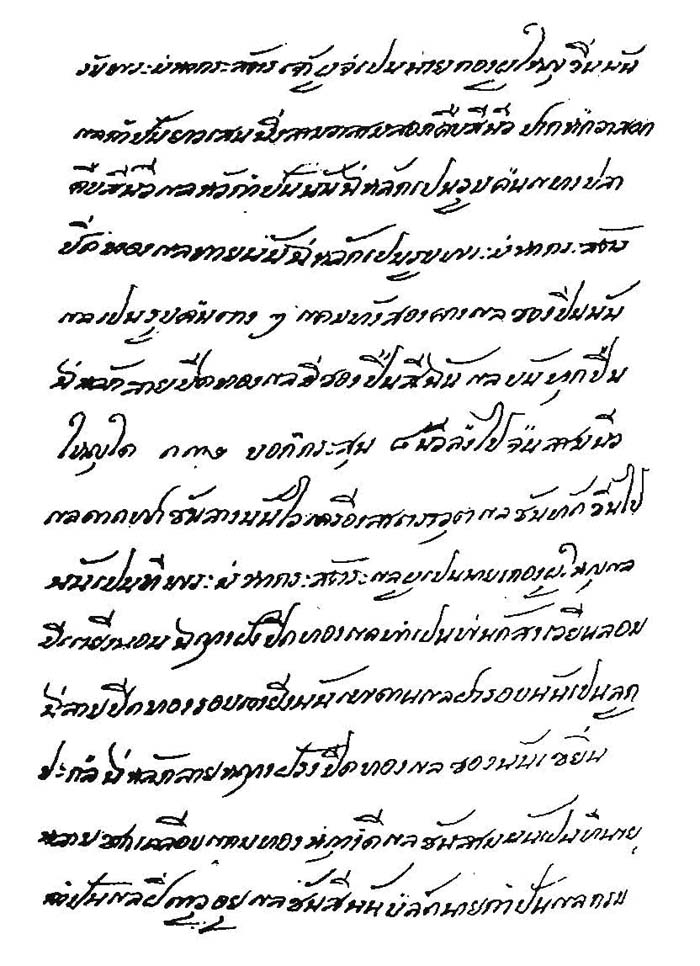 รับพระมหากระสัตรเจ้าผู้จเปนนายกองผูใหญ่ขึ้นนัน
แลกำปั่นยาวเสนนึงสามวาสามสอกคืบสีนิ้ว ปากหกวาสอก
คืบสีนิ้วแลหัวกำปั่นนันมีหลักเปนรูปคนแทงปลา
ปิดทองแลทายนันมีหลักเปนรูปพระมหากระสัตร
แลเปนรูปต่าง ๆ แถมทังสองขางแลชองปืนนัน
มีหลักลายปิดทองแลมีชองปืนสีชั้น แลบันทุกปืน
ใหญได ๓๓๒ บอกกระสุน ๘ นิ้วลงไปจนสามนิ้ว
แลดาดฟาชั้นลางนันไวเครื่องสาตราวุธ แลชั้นถัดขึ้นไป
นันเปนทีพระมหากระสัตรแลผูเปนนายกองผูใหญแล
มีเตยีงนอน มีญางฝรังปิดทองแลทำเปนพนักสังเวียนลอม
มีลายปิดทองรอบเตยีงนันเพดานแลฝารอบนันเปนลูก
ประกล มีหลักลายหญางฝรังปิดทองแลชองนันเขยีน
ชาดเคลือบแถมทองหญางดีแลชั้นสามนันเปนทีนาย
กำปั่นแลอยูแลชั้นสีนันบลัดนายกำปั่นแลกรม